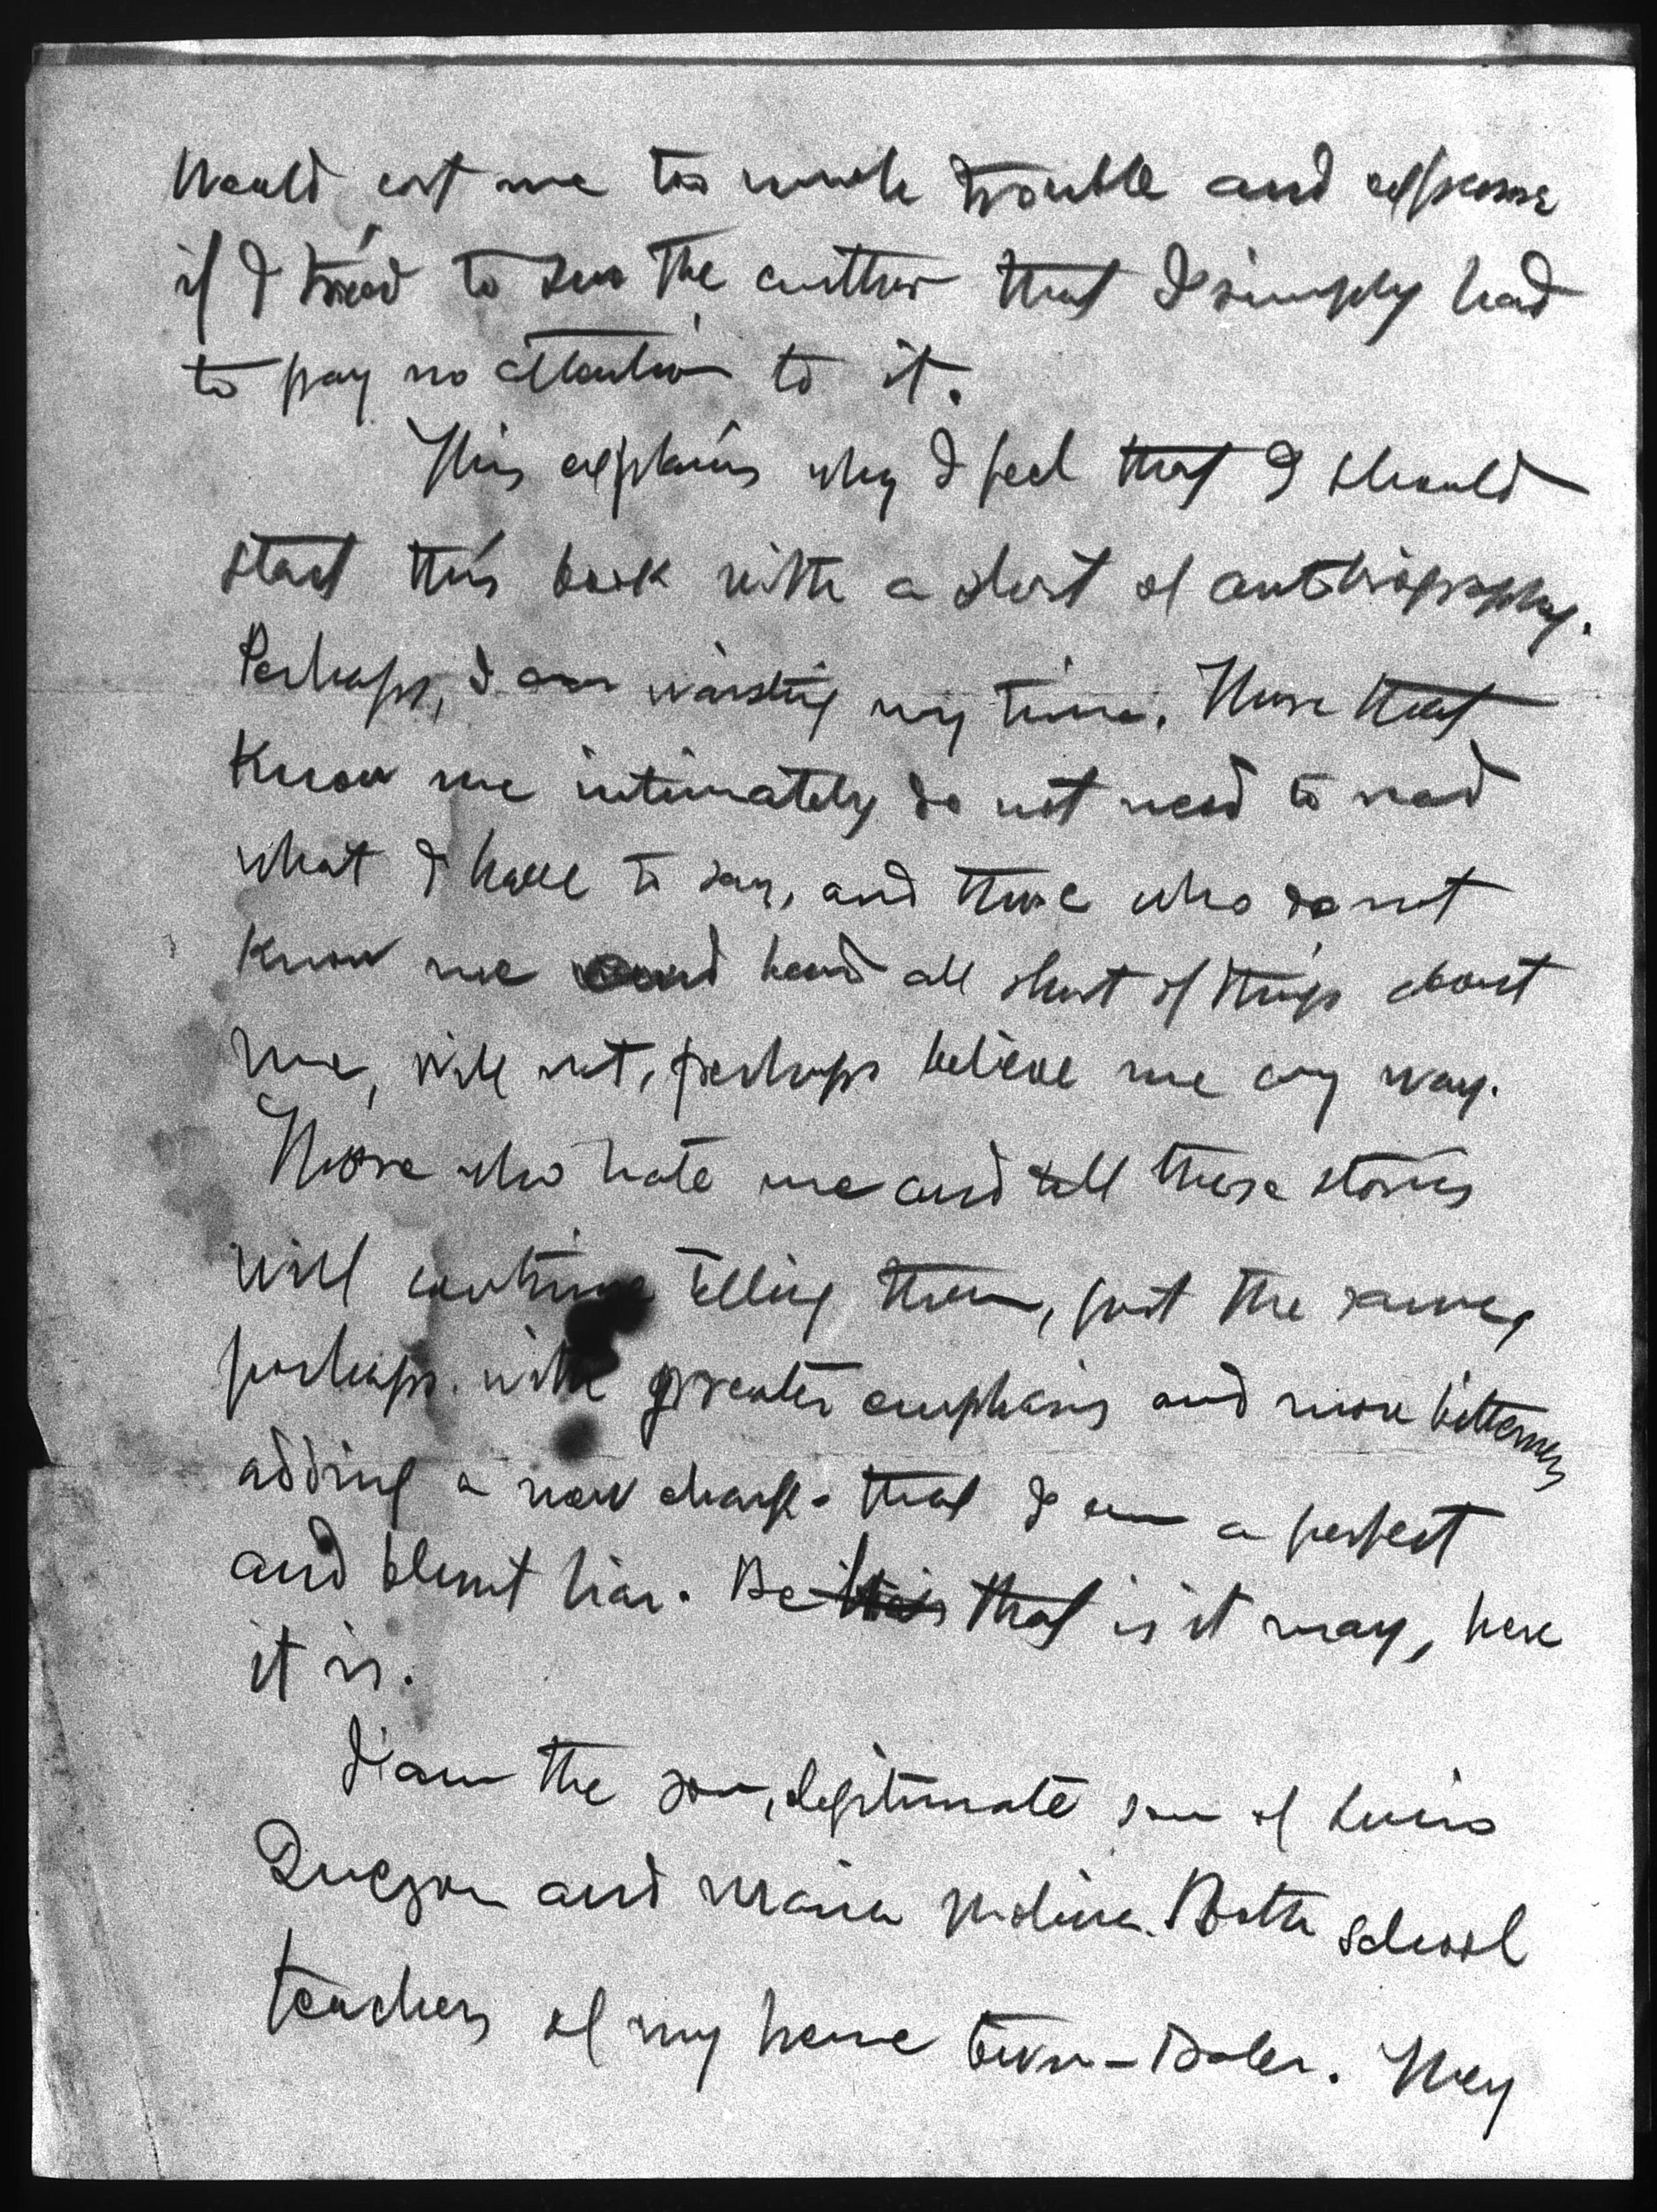 Would cost me too much trouble and expense
if I tried to sue the author that I simply had
to pay no attention to it.
This explains why I feel that I should
start this book with a short of autobiography.
Perhaps, I am waisting my time. Those that
know me intimately do not need to read
what I have to say, and those who do not
know me and heard all short of things about
me, will not, perhaps believe me any way.
Those who hate me and tell these stories
will continue telling them, just the same,
perhaps with greater emphasis and more bitterness
adding a new charge that I am a perfect
and blunt liar. Be this that is it may, here
it is.
I am the son, legitimate son of Lucio
Quezon and Maria Molina. Both school
teachers of my home town - Baler. They